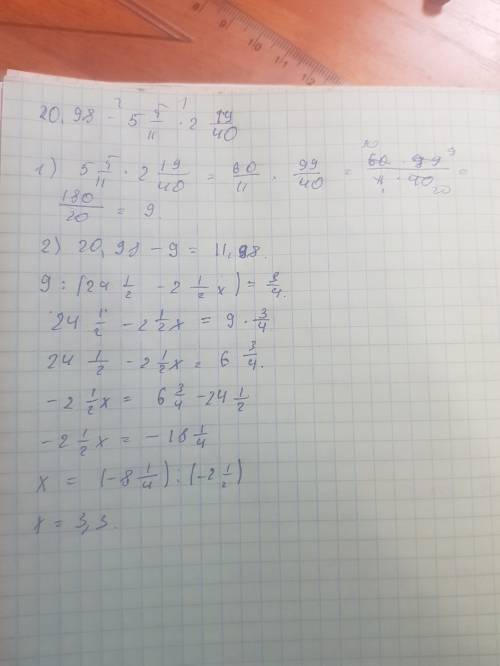 20,98 - 5 5/11 · 2 19/40
2 1
1) 5 5/11 · 2 19/40 = 60/11 · 99/40 = 60 · 99/11 · 40 =
180/20 = 9.
2) 20,98 - 9 = 11,98.
9 : (24 1/2 - 2 1/2 x) = 3/4.
24 1/2 - 2 1/2 x = 9 · 3/4
24 1/2 - 2 1/2 x = 6 3/4.
-2 1/2 x = 6 3/4 - 24 1/2
-2 1/2 x = -18 1/4
x = (-8 1/4) : (-2 1/2)
x = 3,3.